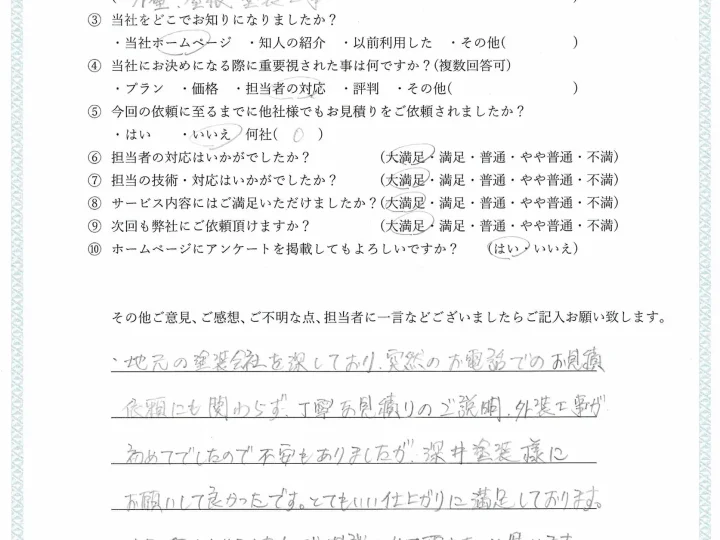 外壁、屋根 塗装工事
③ 当社をどこでお知りになりましたか?
・当社ホームページ ・知人の紹介 ・以前利用した ・その他( )
④ 当社にお決めになる際に重要視された事は何ですか?(複数回答可)
・プラン ・価格 ・担当者の対応 ・評判 ・その他( )
⑤ 今回の依頼に至るまでに他社様でもお見積りをご依頼されましたか?
・はい ・いいえ 何社( 0 )
⑥ 担当者の対応はいかがでしたか? (大満足・満足・普通・やや普通・不満)
⑦ 担当の技術・対応はいかがでしたか? (大満足・満足・普通・やや普通・不満)
⑧ サービス内容にはご満足いただけましたか?(大満足・満足・普通・やや普通・不満)
⑨ 次回も弊社にご依頼頂けますか? (大満足・満足・普通・やや普通・不満)
⑩ ホームページにアンケートを掲載してもよろしいですか? (はい・いいえ)
その他ご意見、ご感想、ご不明な点、担当者に一言などございましたらご記入お願い致します。
・地元の塗装会社を探しており、突然のお電話でのお見積
依頼にも関わらず、丁寧なお見積りのご説明、外装工事が
初めてでしたので不安もありましたが、深井塗装様に
お願いして良かったです。とてもいい仕上がりに満足しております。